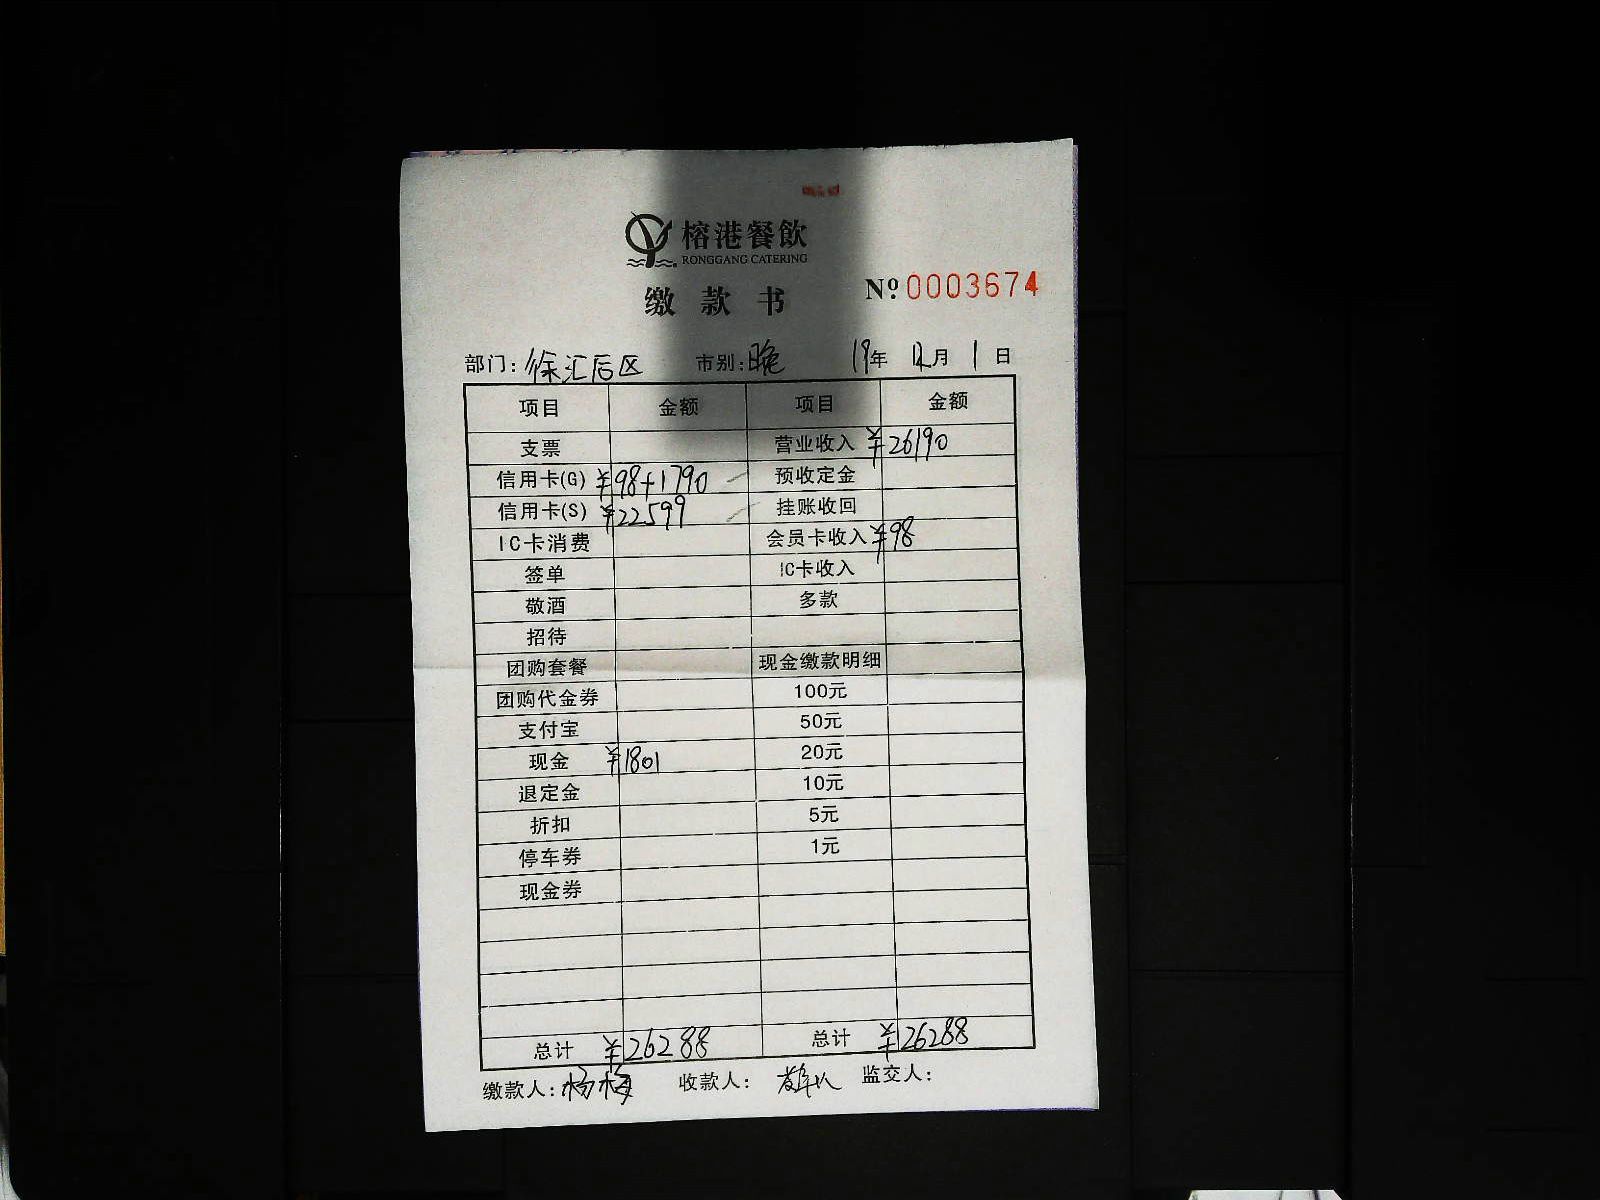 榕港餐飲
RONGGANG CATERING
缴款书 № 0003674
部门: 徐汇后区 市别: 晚 19年 12月 1日
项目 金额 项目 金额
支票 营业收入 ¥26190
信用卡(G) ¥98+1790 预收定金
信用卡(S) ¥22599 挂账收回
IC卡消费 会员卡收入 ¥98
签单 IC卡收入
敬酒 多款
招待
团购套餐 现金缴款明细
团购代金券 100元
支付宝 50元
现金 ¥1801 20元
退定金 10元
折扣 5元
停车券 1元
现金券
总计 ¥26288 总计 ¥26288
缴款人: 杨梅 收款人: 监交人: